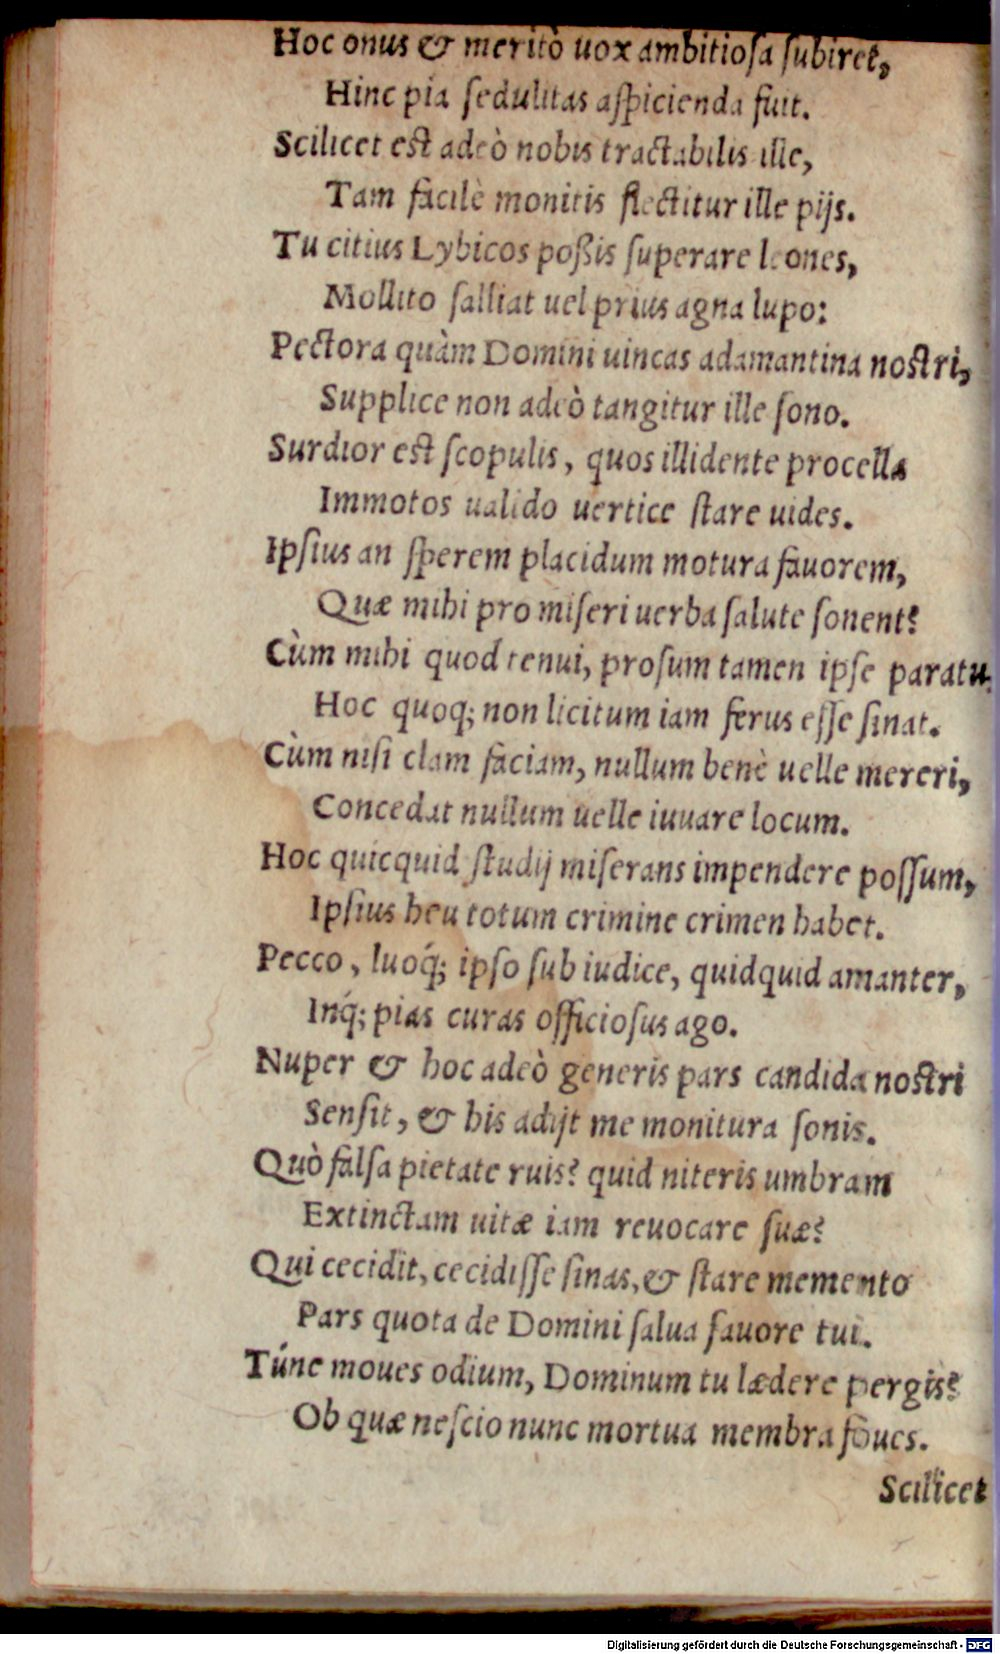 Hoc onus & meritò uox ambitiosa subiret,
Hinc pia sedulitas aspicienda fuit.
Scilicet est adeò nobis tractabilis ille,
Tam facilè monitis flectitur ille pijs.
Tu citius Lybicos poßis superare leones,
Mollito salliat uel prius agna lupo:
Pectora quàm Domini uincas adamantina nostri,
Supplice non adeò tangitur ille sono.
Surdior est scopulis, quos illidente procella
Immotos ualido uertice stare uides.
Ipsius an sperem placidum motura fauorem,
Quæ mihi pro miseri uerba salute sonent?
Cùm mihi quod tenui, prosum tamen ipse paratu
Hoc quoq; non licitum iam ferus esse sinat.
Cùm nisi clam faciam, nullum benè uelle mereri,
Concedat nullum uelle iuuare locum.
Hoc quicquid studij miserans impendere possum,
Ipsius heu totum crimine crimen habet.
Pecco, luoq́; ipso sub iudice, quidquid amanter,
Inq́; pias curas officiosus ago.
Nuper & hoc adeò generis pars candida nostri
Sensit, & his adijt me monitura sonis.
Quò falsa pietate ruis? quid niteris umbram
Extinctam uitæ iam reuocare suæ?
Qui cecidit, cecidisse sinas, & stare memento
Pars quota de Domini salua fauore tui.
Túnc moues odium, Dominum tu lædere pergis?
Ob quæ nescio nunc mortua membra foues.
Scilicet
Digitalisierung gefördert durch die Deutsche Forschungsgemeinschaft - DFG